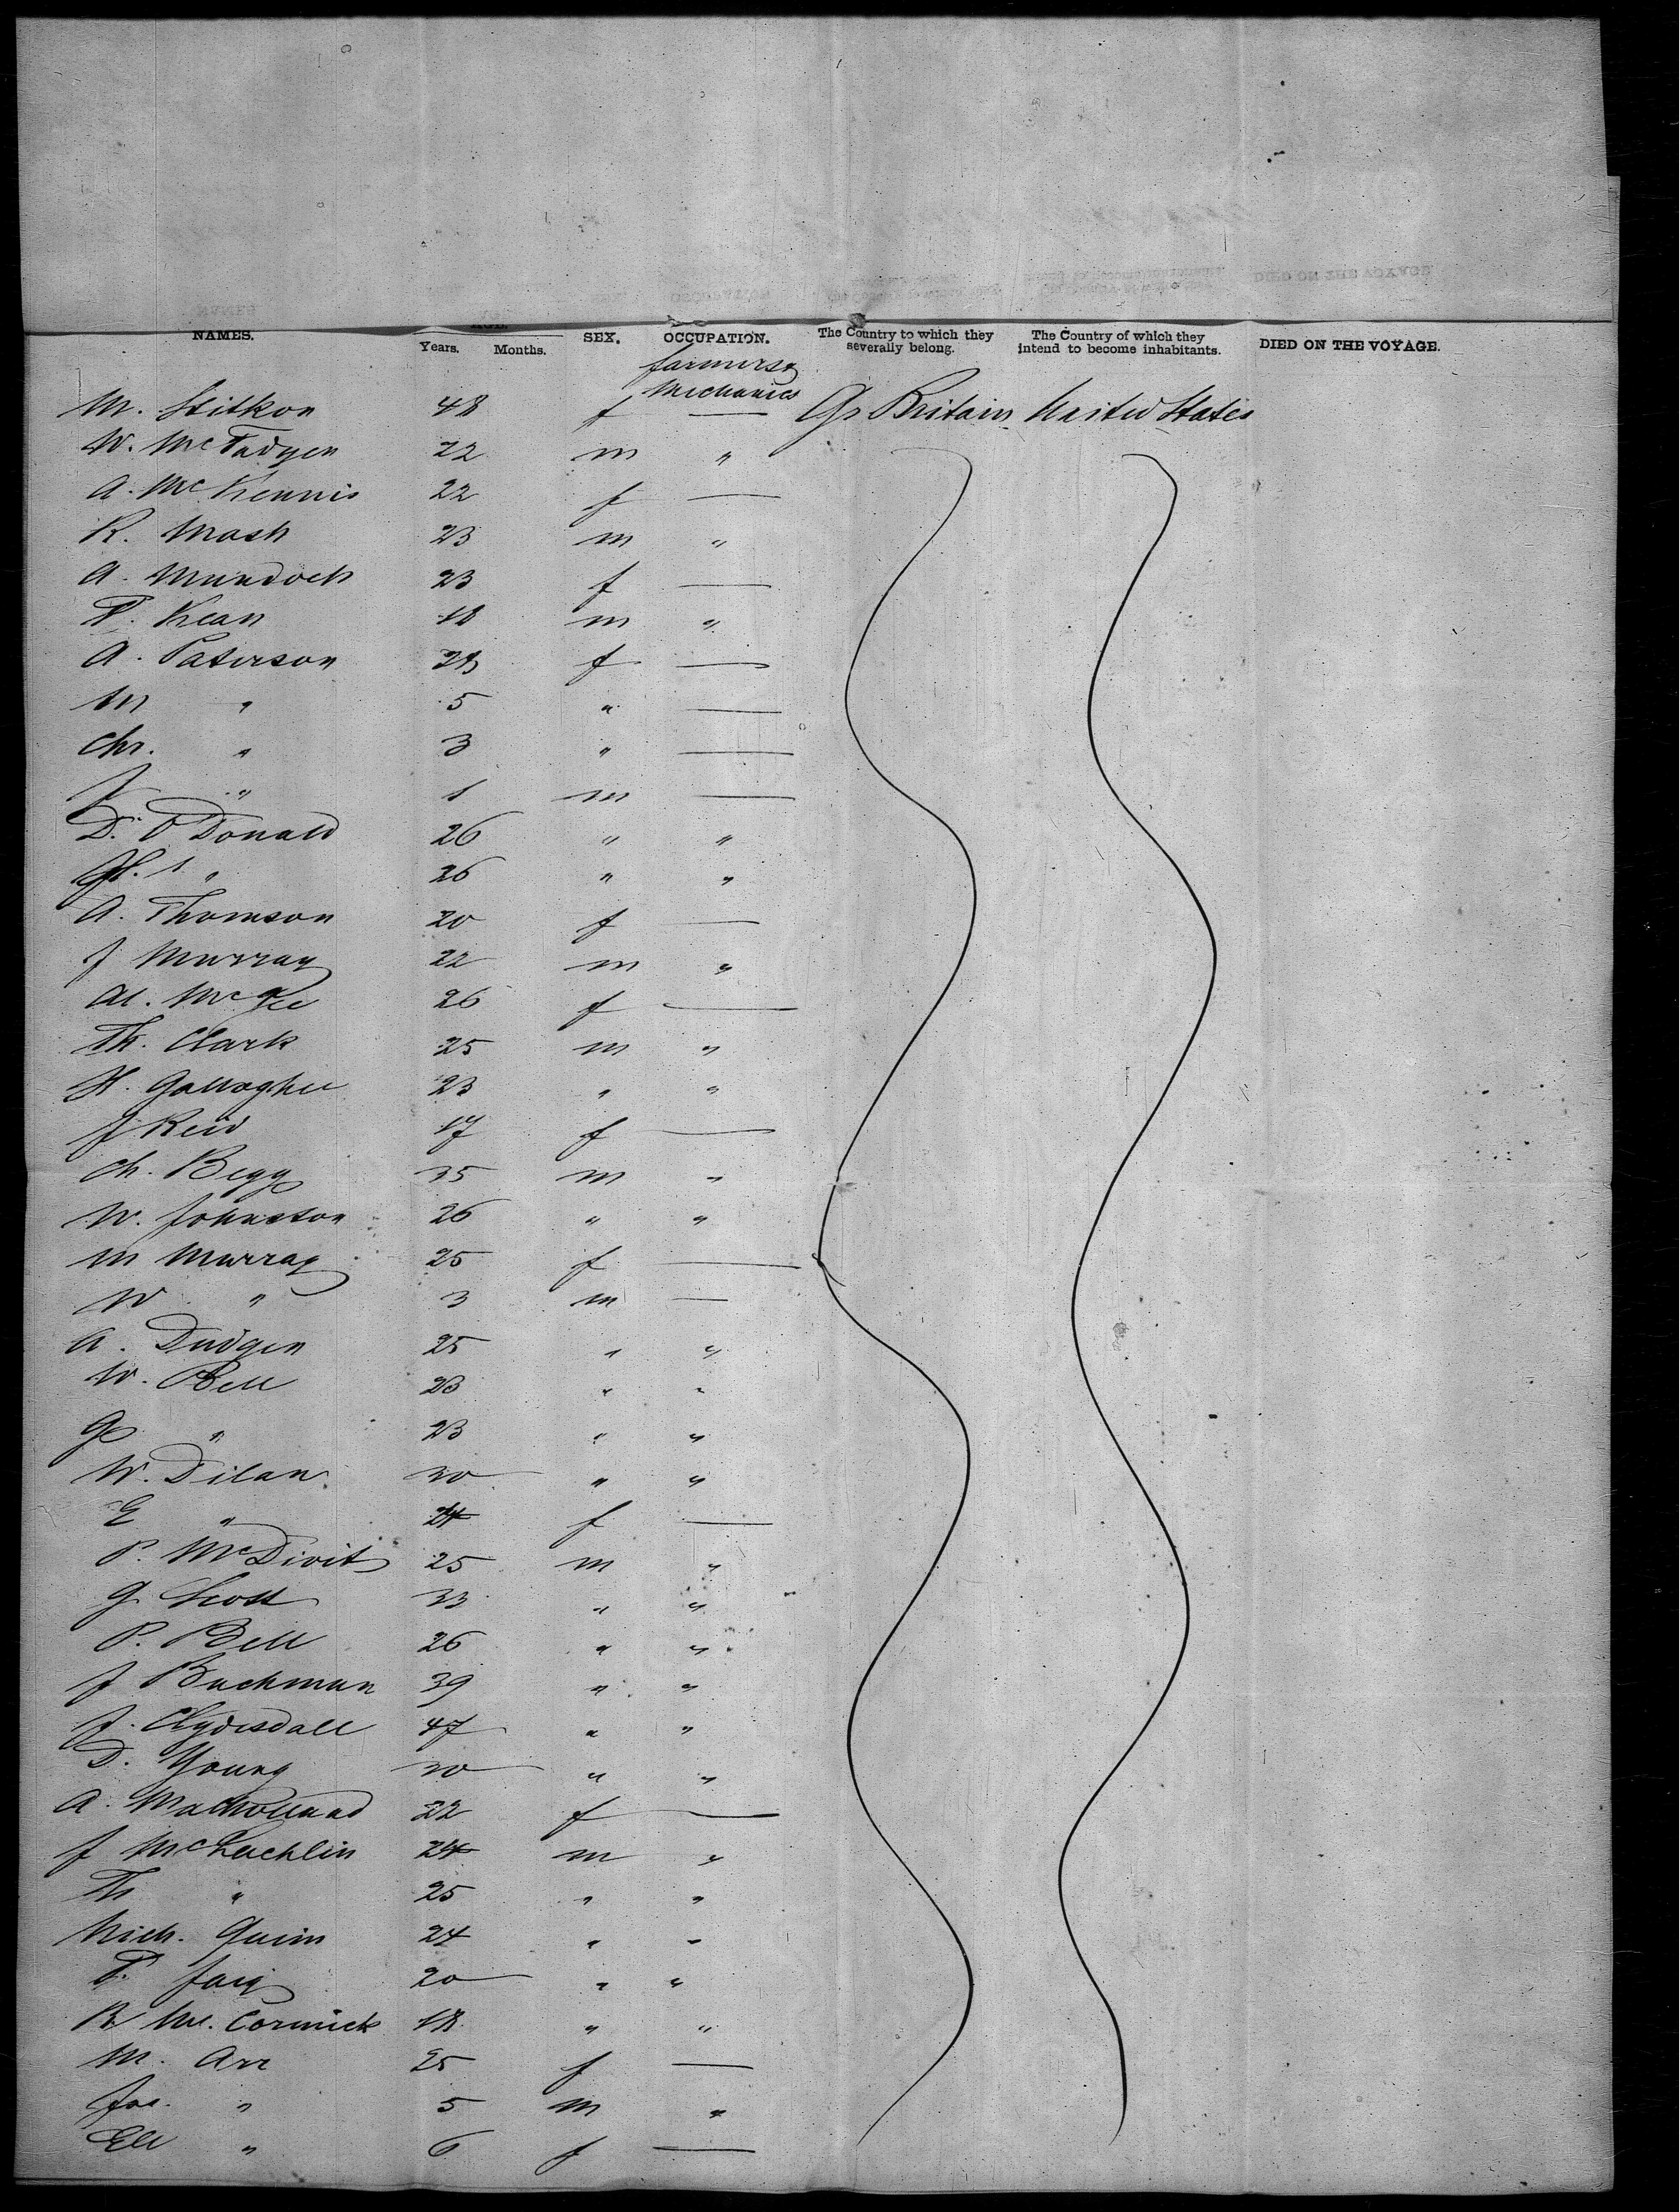 NAMES. Years. Months. SEX. OCCUPATION. The Country to which they severally belong. The Country of which they intend to become inhabitants. DIED ON THE VOYAGE.
farmers &
Mechanics
M. 48 f — Gr Britain United States
W. McFadyen 22 m "
A. McKennis 22 f —
R. Mash 23 m "
A. Murdoch 23 f —
P. Kean 18 m "
A. Paterson 28 f —
M " 5 " —
Chr. " 3 " —
J " 1 m —
D. O'Donald 26 " "
" 26 " "
A. Thomson 20 f —
J Murray 22 m "
Al. McGee 26 f —
Th. Clark 25 m "
H. Gallagher 23 " "
J Reid 17 f —
Ch. Begg 35 m "
W. Johnston 26 " "
M Murray 25 f —
W " 3 m —
A. Dudgen 25 " "
W. Bell 23 " "
Go " 23 " "
W. Dilan 30 " "
E " 24 f —
P. McDivit 25 m "
G. Scott 33 " "
P. Bell 26 " "
J Buchman 39 " "
J. Clydesdall 47 " "
D. Young 30 " "
A. 22 f —
J McLachlin 24 m "
Th " 25 " "
Mich. Quinn 24 " "
P. 20 " "
R Mc. Cormick 18 " "
M. Arr 25 f —
Jas. " 5 m "
Ell " 6 f —